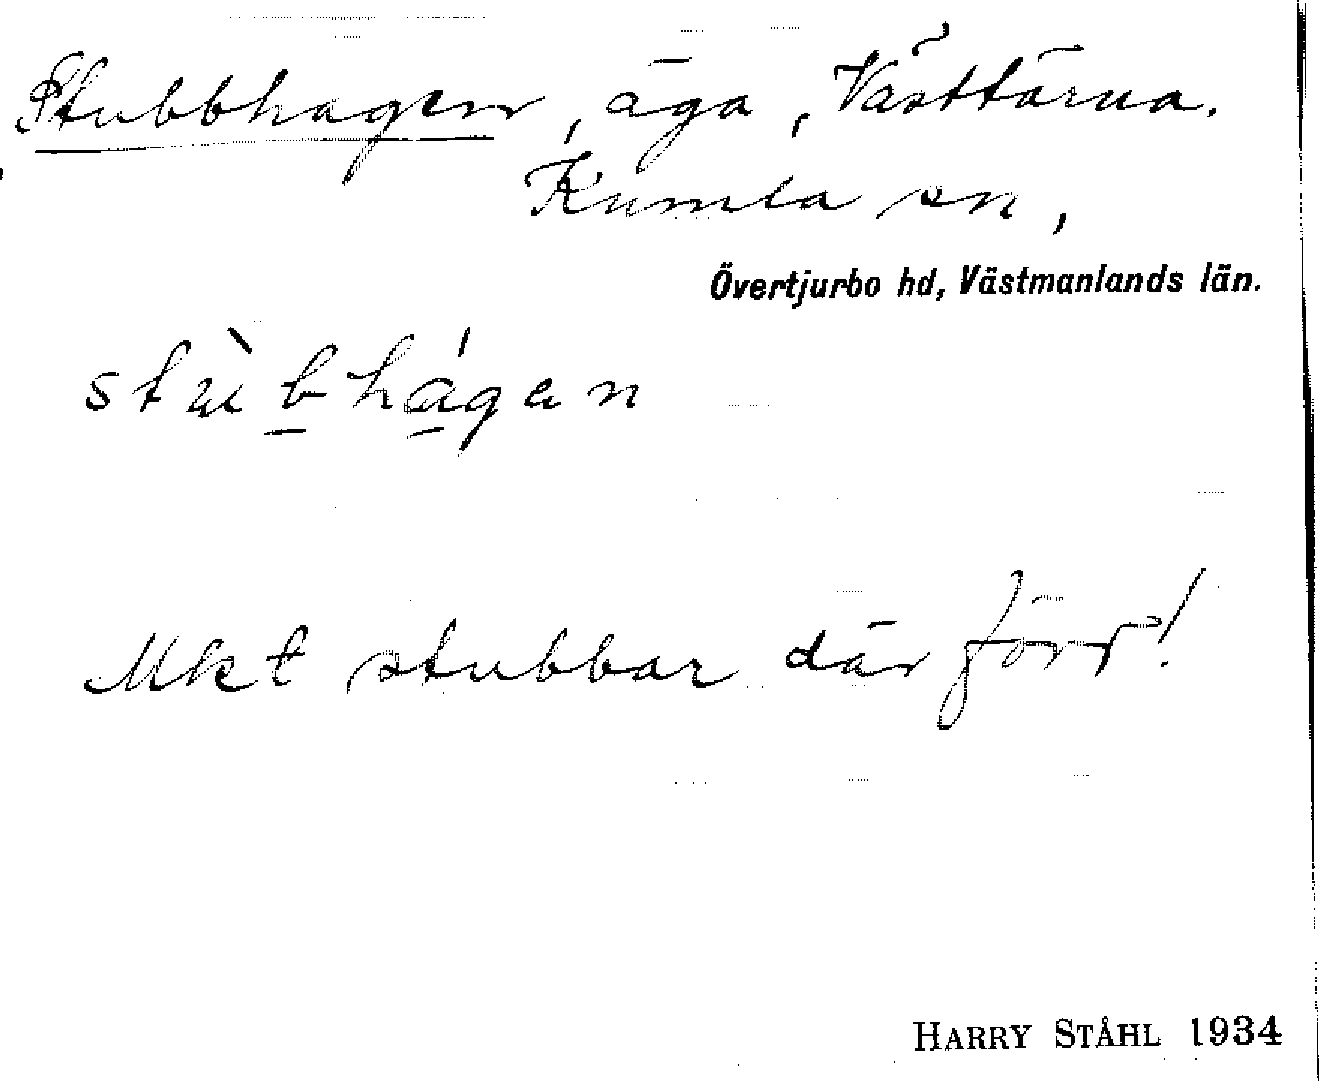 Stubbhagen, äga, Västtärna.
Kumla sn,
Övertjurbo hd, Västmanlands län.
stùbhágan
Mkt stubbar där förr!
HARRY STÅHL 1934